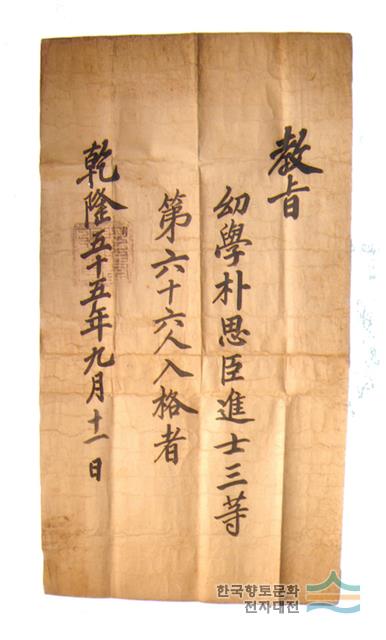 敎旨
幼學朴思臣進士三等
第六十六人入格者
乾隆五十五年九月十一日
한국향토문화
전자대전